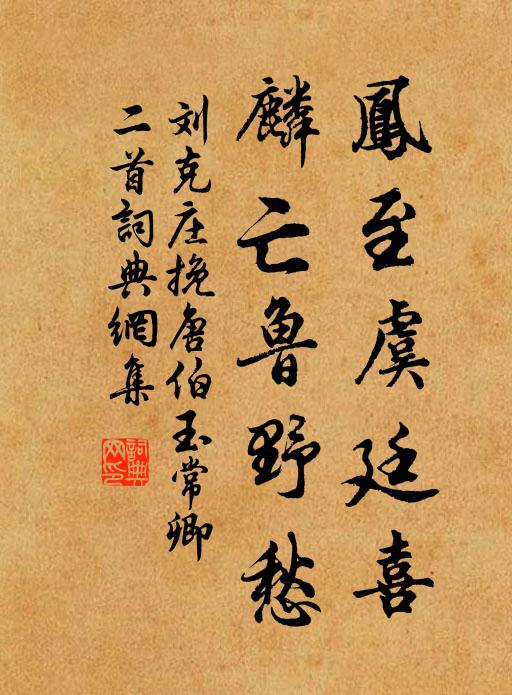 鳳至虞廷喜
麟亡魯野愁
刘克庄挽唐伯玉常卿
二首詞典網集
詞典网印